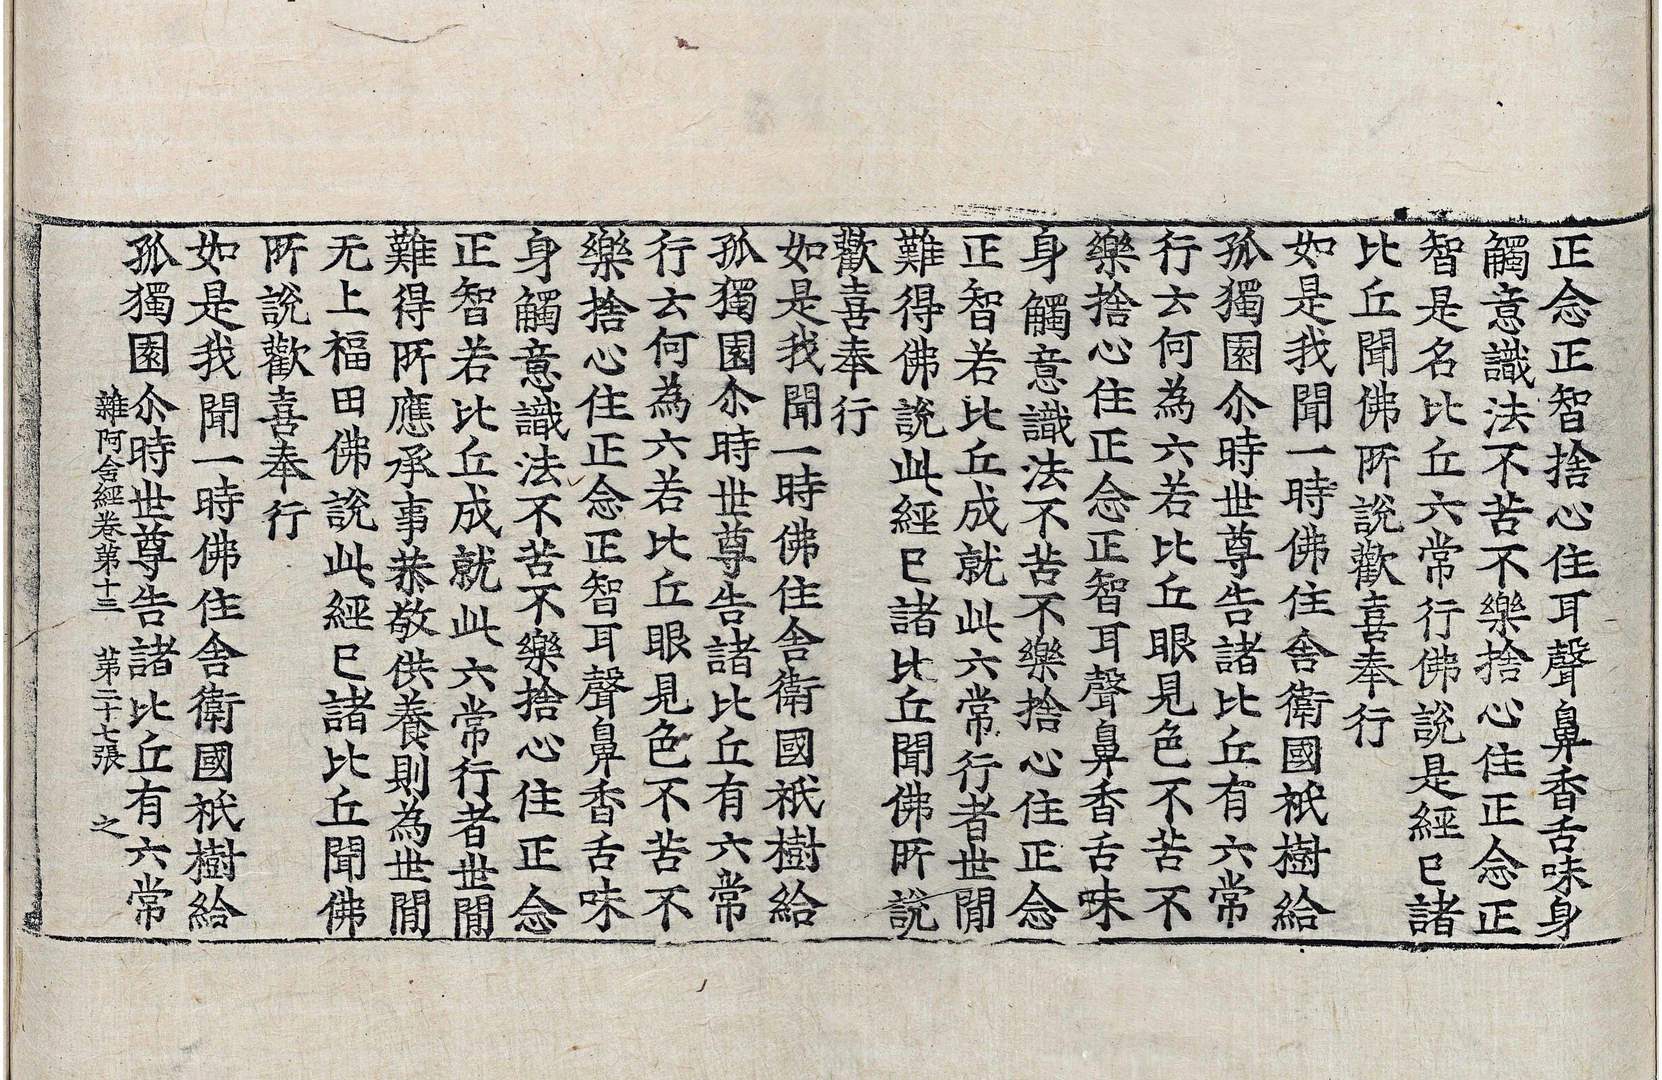 正念正智捨心住耳聲鼻香舌味身
觸意識法不苦不樂捨心住正念正
智是名比丘六常行佛說是經已諸
比丘聞佛所說歡喜奉行
如是我聞一時佛住舍衛國祇樹給
孤獨園尒時世尊告諸比丘有六常
行云何為六若比丘眼見色不苦不
樂捨心住正念正智耳聲鼻香舌味
身觸意識法不苦不樂捨心住正念
正智若比丘成就此六常行者世閒
難得佛說此經已諸比丘聞佛所說
歡喜奉行
如是我聞一時佛住舍衛國祇樹給
孤獨園尒時世尊告諸比丘有六常
行云何為六若比丘眼見色不苦不
樂捨心住正念正智耳聲鼻香舌味
身觸意識法不苦不樂捨心住正念
正智若比丘成就此六常行者世閒
難得所應承事恭敬供養則為世閒
无上福田佛說此經已諸比丘聞佛
所說歡喜奉行
如是我聞一時佛住舍衛國祇樹給
孤獨園尒時世尊告諸比丘有六常
雜阿含經卷第十三 第二十七張 之